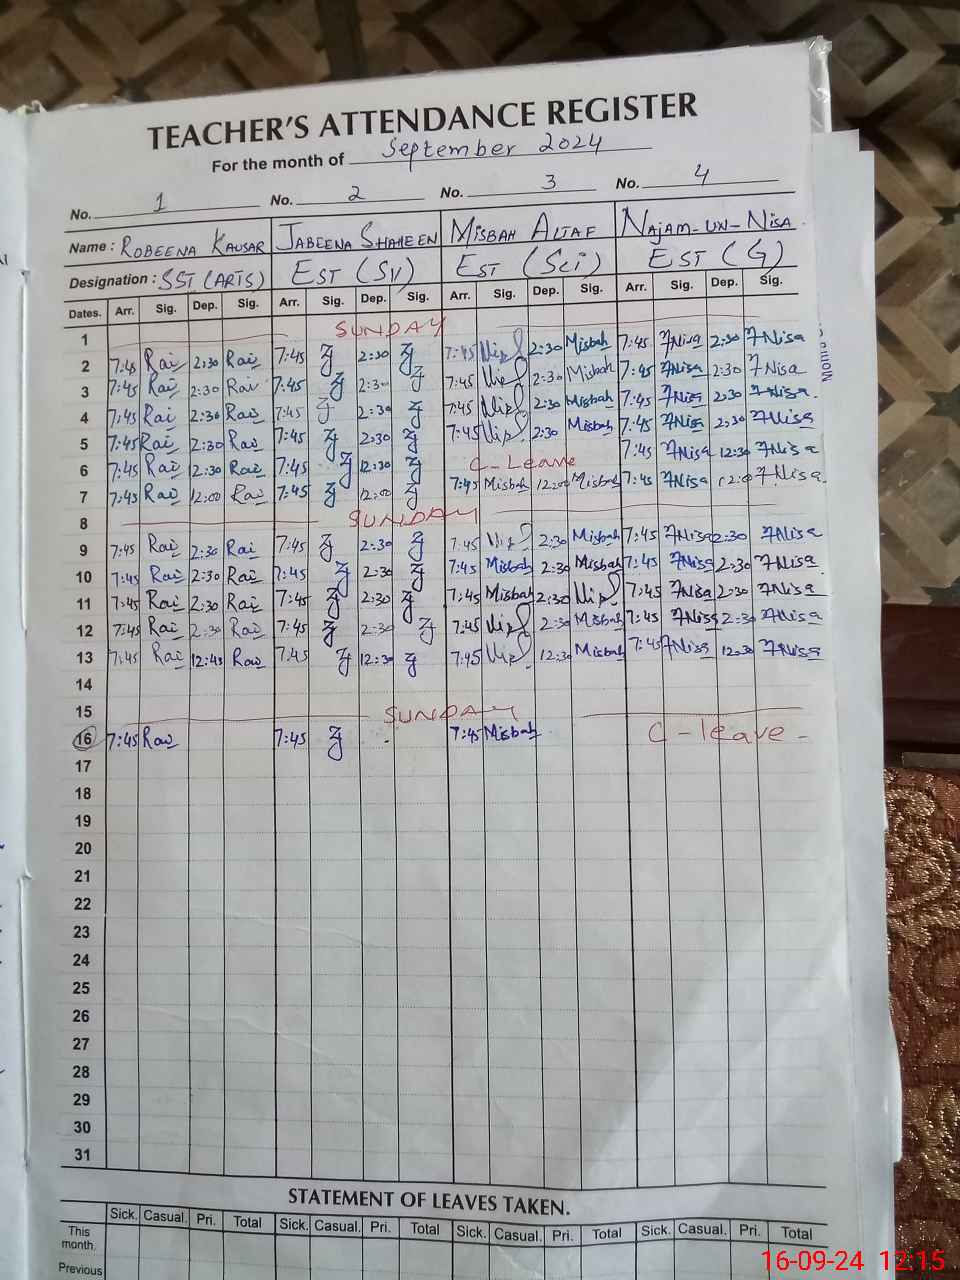 TEACHER'S ATTENDANCE REGISTER
For the month of September 2024
No. 1 No. 2 No. 3 No. 4
Name : ROBEENA KAUSAR JABEENA SHAHEEN MISBAH ALTAF NAJAM-UN-NISA
Designation : SST (ARTS) EST (SV) EST (Sci) EST (G)
Dates. Arr. Sig. Dep. Sig. Arr. Sig. Dep. Sig. Arr. Sig. Dep. Sig. Arr. Sig. Dep. Sig.
1 SUNDAY
2 7:45 Rai 2:30 Rai 7:45 2:30 7:45 2:30 Misbah 7:45 7Nisa 2:30 7Nisa
3 7:45 Rai 2:30 Rai 7:45 2:30 7:45 2:30 Misbah 7:45 7Nisa 2:30 7Nisa
4 7:45 Rai 2:30 Rai 7:45 2:30 7:45 2:30 Misbah 7:45 7Nisa 2:30 7Nisa
5 7:45 Rai 2:30 Rai 7:45 2:30 7:45 2:30 Misbah 7:45 7Nisa 2:30 7Nisa
6 7:45 Rai 12:30 Rai 7:45 12:30 C-Leave 7:45 7Nisa 12:30 7Nisa
7 7:45 Rai 12:00 Rai 7:45 12:00 7:45 Misbah 12:00 Misbah 7:45 7Nisa 12:0 7Nisa
8 SUNDAY
9 7:45 Rai 2:30 Rai 7:45 2:30 7:45 2:30 Misbah 7:45 7Nisa 2:30 7Nisa
10 7:45 Rai 2:30 Rai 7:45 2:30 7:45 Misbah 2:30 Misbah 7:45 7Nisa 2:30 7Nisa
11 7:45 Rai 2:30 Rai 7:45 2:30 7:45 Misbah 2:30 7:45 7Nisa 2:30 7Nisa
12 7:45 Rai 2:30 Rai 7:45 2:30 7:45 2:30 Misbah 7:45 7Nisa 2:30 7Nisa
13 7:45 Rai 12:45 Rai 7:45 12:30 7:45 12:30 Misbah 7:45 7Nisa 12:30 7Nisa
14
15 SUNDAY
16 7:45 Rai 7:45 7:45 Misbah C-leave-
17
18
19
20
21
22
23
24
25
26
27
28
29
30
31
STATEMENT OF LEAVES TAKEN.
Sick. Casual. Pri. Total Sick. Casual. Pri. Total Sick. Casual. Pri. Total Sick. Casual. Pri. Total
This month.
Previous
16-09-24 12:15